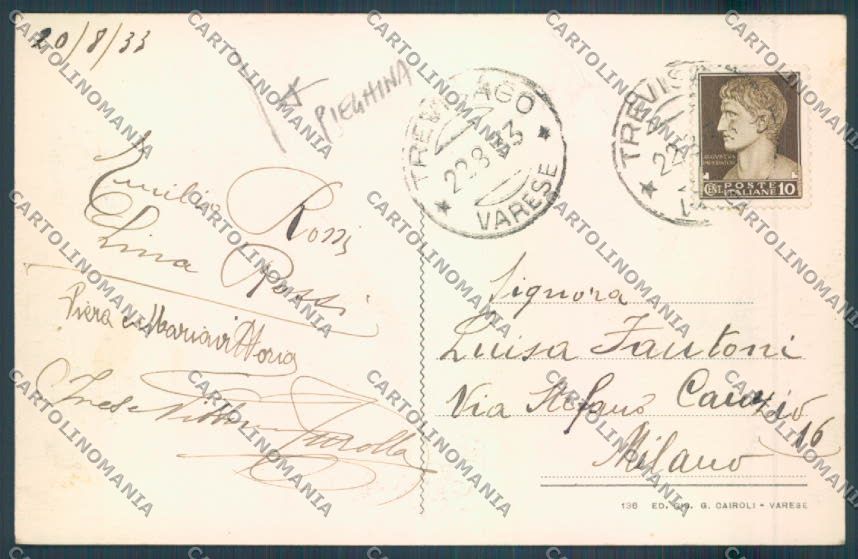 20/8/33
PIEGHINA
TREVISAGO
22.8.33
VARESE
TREVIS
22.8
AUGUSTUS
IMPERATOR
CENT. POSTE ITALIANE 10
Emilio Rossi
Lina Rossi
Piera e Mariavittoria
Ines e
Signora
Luisa Fantoni
Via Stefano
16
Milano
136 ED. GIG. G. CAIROLI - VARESE
CARTOLINOMANIA